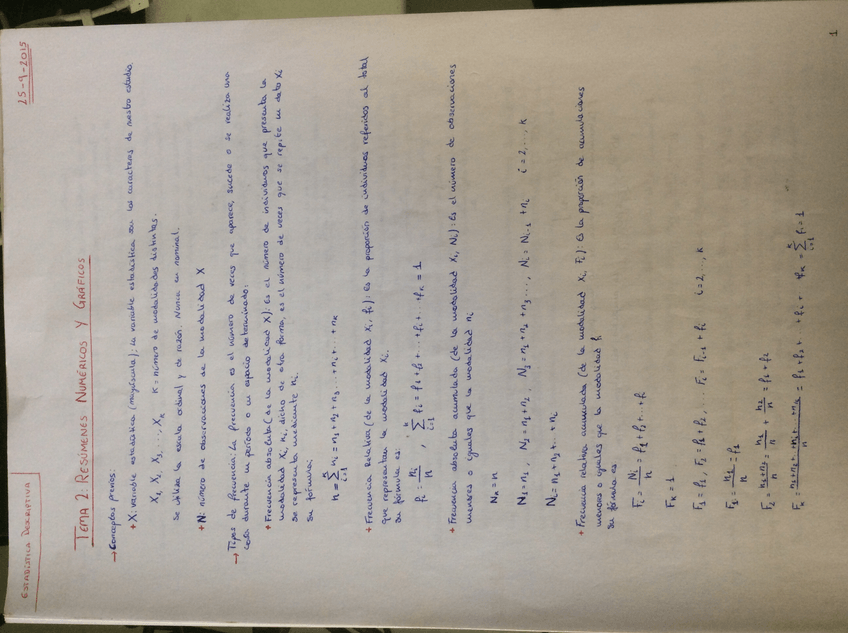 ESTADÍSTICA DESCRIPTIVA
25-9-2015
TEMA 2: RESÚMENES NUMÉRICOS Y GRÁFICOS
→ Conceptos previos:
+ X: variable estadística (mayúscula): la variable estadística son los caracteres de nuestro estudio.
X₁, X₂, X₃, ..., Xₖ K = número de modalidades distintas.
se utiliza la escala ordinal y de razón. Nunca en nominal.
+ N: número de observaciones de la modalidad X
→ Tipos de frecuencia: La frecuencia es el número de veces que aparece, sucede o se realiza una
cosa durante un período o un espacio determinado.
+ Frecuencia absoluta (de la modalidad X): Es el número de individuos que presenta la
modalidad Xi, ni, dicho de otra forma, es el número de veces que se repite un dato Xi
se representa mediante ni.
Su fórmula:
n = ∑ᵢ₌₁ᵏ ni = n₁ + n₂ + n₃ ... + ni + ... + nₖ
+ Frecuencia Relativa (de la modalidad Xi, fi): Es la proporción de individuos referidos al total
que representan la modalidad Xi.
Su fórmula es:
fi = ni/n , ∑ᵢ₌₁ᵏ fi = f₁ + f₂ + ... + fi + ... + fₖ = 1
+ Frecuencia absoluta acumulada (de la modalidad Xi, Ni): Es el número de observaciones
menores o iguales que la modalidad ni
Nₖ = n
N₁ = n₁ , N₂ = n₁ + n₂ , N₃ = n₁ + n₂ + n₃ ... , Ni = Ni₋₁ + ni i = 2, ..., K
Ni = n₁ + n₂ + ... + ni
+ Frecuencia relativa acumulada (de la modalidad Xi, Fi): Es la proporción de acumulaciones
menores o iguales que la modalidad fi
Su fórmula es
Fi = Ni/n = f₁ + f₂ + ... + fi
Fₖ = 1
F₁ = f₁, F₂ = f₁ + f₂, ... Fi = Fi₋₁ + fi i = 2, ..., K
F₁ = n₁/n = f₁
F₂ = n₁+n₂/n = n₁/n + n₂/n = f₁ + f₂
Fₖ = n₁+n₂+...+ni+...+nₖ/n = f₁ + f₂ + ... + fi + ... + fₖ = ∑ᵢ₌₁ᵏ fi = 1
1